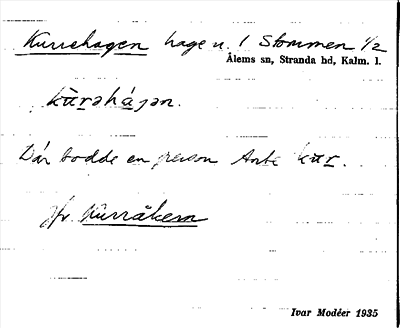 Kurrehagen hage n. 1 Stommen 1/2
Ålems sn, Stranda hd, Kalm. l.
kùrəhágən.
Där bodde en person Ante kur.
Jfr Kurråkern
Ivar Modéer 1935